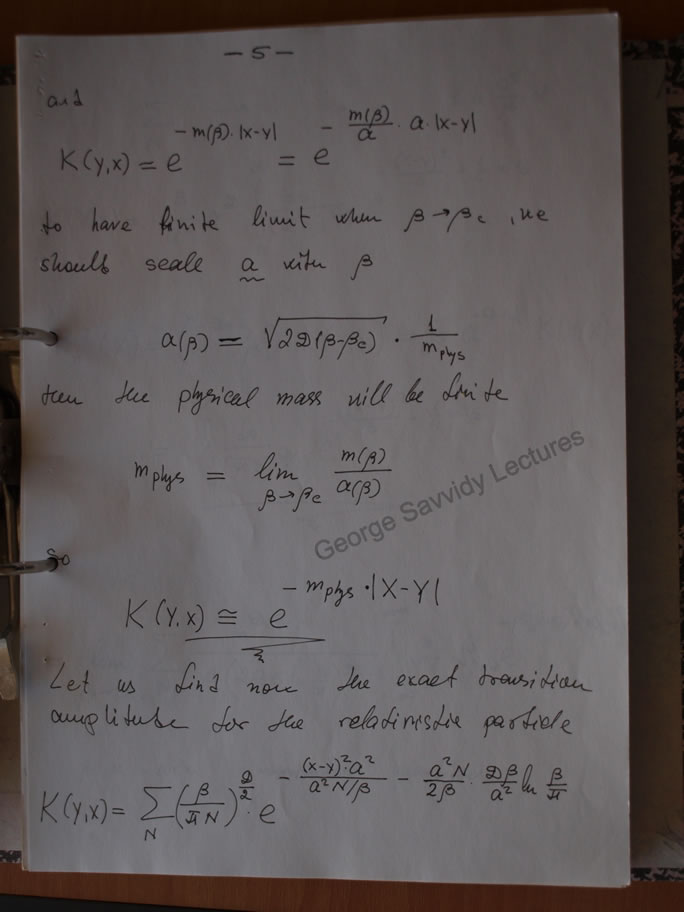 — 5 —
and
K(y,x) = e^{-m(β)·|x-y|} = e^{-\frac{m(β)}{a}·a·|x-y|}
to have finite limit when β→β_c, we
should scale a with β
a(β) = √{2D(β-β_c)} · \frac{1}{m_{phys}}
then the physical mass will be finite
m_{phys} = lim_{β→β_c} \frac{m(β)}{a(β)}
George Savvidy Lectures
So
K(Y,X) ≅ e^{-m_{phys}·|X-Y|}
Let us find now the exact transition
amplitude for the relativistic particle
K(Y,x) = ∑_N (\frac{β}{πN})^{\frac{D}{2}} · e^{-\frac{(x-y)^2·a^2}{a^2N/β} - \frac{a^2N}{2β}·\frac{Dβ}{a^2} ln \frac{β}{π}}